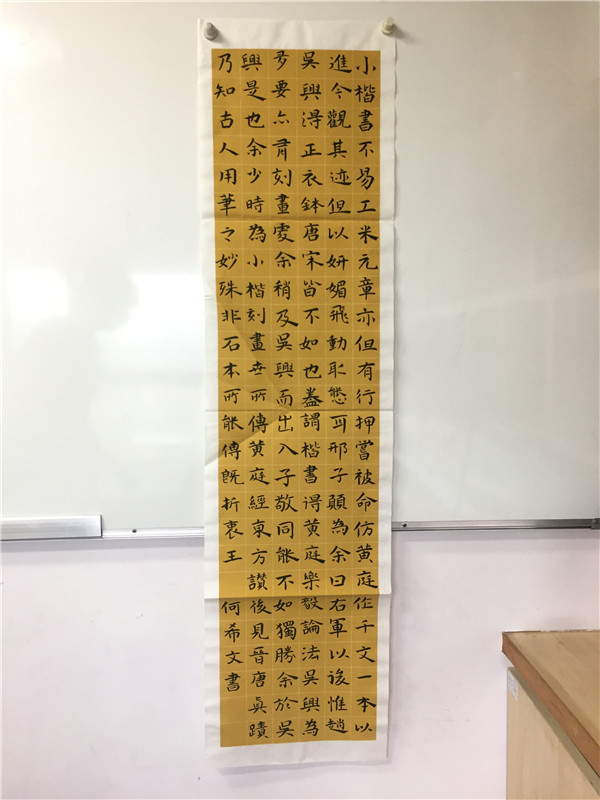 小楷書不易工米元章亦但有行押嘗被命仿黄庭作千文一本以
進今觀其迹但以妍媚飛動取態耳邢子願為余曰右軍以後惟趙
吳興得正衣鉢唐宋皆不如也蓋謂楷書得黄庭樂毅論法吳興為
多要亦刻畫處余稍及吳興而出入子敬同能不如獨勝余於吳
興是也余少時為小楷刻畫世所傳黄庭經東方讚後見晉唐真蹟
乃知古人用筆之妙殊非石本所能傳既折衷王 何希文書